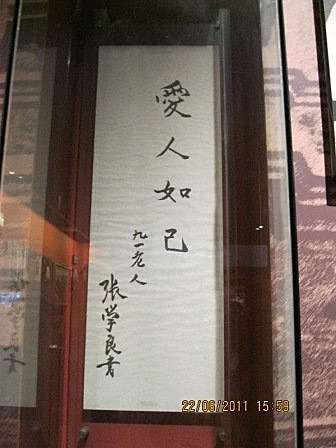 愛人如己
九一老人
張学良書
22/06/2011 15:59